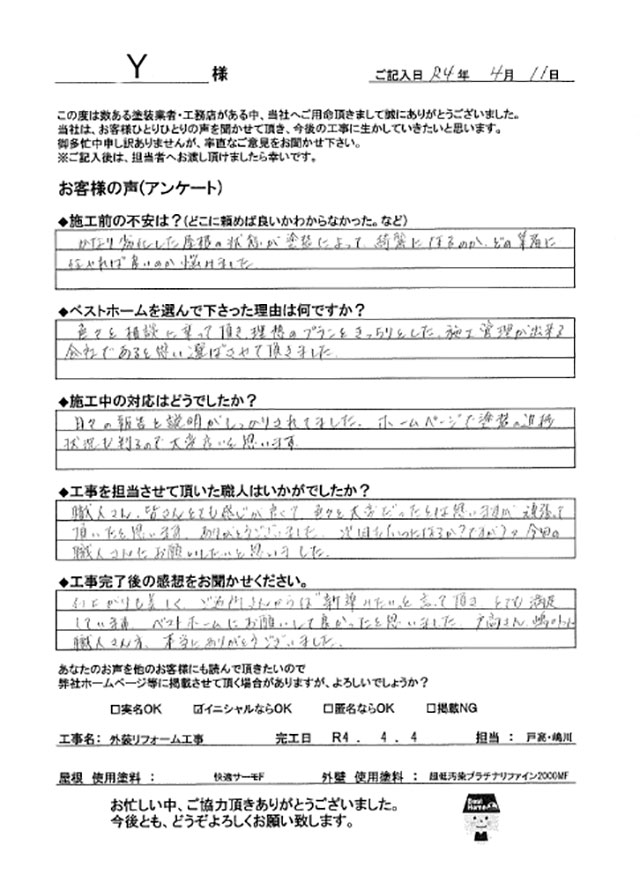 Y 様 ご記入日 R4年 4月 11日
この度は数ある塗装業者・工務店がある中、当社へご用命頂きまして誠にありがとうございました。
当社は、お客様ひとりひとりの声を聞かせて頂き、今後の工事に生かしていきたいと思います。
御多忙中申し訳ありませんが、率直なご意見をお聞かせ下さい。
※ご記入後は、担当者へお渡し頂けましたら幸いです。
お客様の声(アンケート)
◆施工前の不安は?(どこに頼めば良いかわからなかった。など)
かなり劣化した屋根の状態が塗装によって、綺麗になるのか、どの業者に
任せれば良いのか悩みました。
◆ベストホームを選んで下さった理由は何ですか?
色々と相談に乗って頂き、理想のプランをきっちりとした、施工管理が出来る
会社であると思い選ばさせて頂きました。
◆施工中の対応はどうでしたか?
日々の報告と説明がしっかりされてました。ホームページで塗装の進捗
状況も判るので大変良いと思います。
◆工事を担当させて頂いた職人はいかがでしたか?
職人さん、皆さんとても感じが良くて、色々と大変だったとは思いますが頑張って
頂いたと思います。ありがとうございました。次回も 今回の
職人さんにお願いしたいと思いました。
◆工事完了後の感想をお聞かせください。
仕上がりも美しく、ご近所さんからは"新築みたい"と言って頂き、とても満足
しています。ベストホームにお願いして良かったと思いました。戸高さん、嶋川さん、
職人さん方、本当にありがとうございました。
あなたのお声を他のお客様にも読んで頂きたいので
弊社ホームページ等に掲載させて頂く場合がありますが、よろしいでしょうか?
□実名OK ☑イニシャルならOK □匿名ならOK □掲載NG
工事名: 外装リフォーム工事 完工日 R4 . 4 . 4 担当 : 戸高・嶋川
屋根 使用塗料 : 快適サーモF 外壁 使用塗料 : 超低汚染プラチナリファイン2000MF
お忙しい中、ご協力頂きありがとうございました。
今後とも、どうぞよろしくお願い致します。